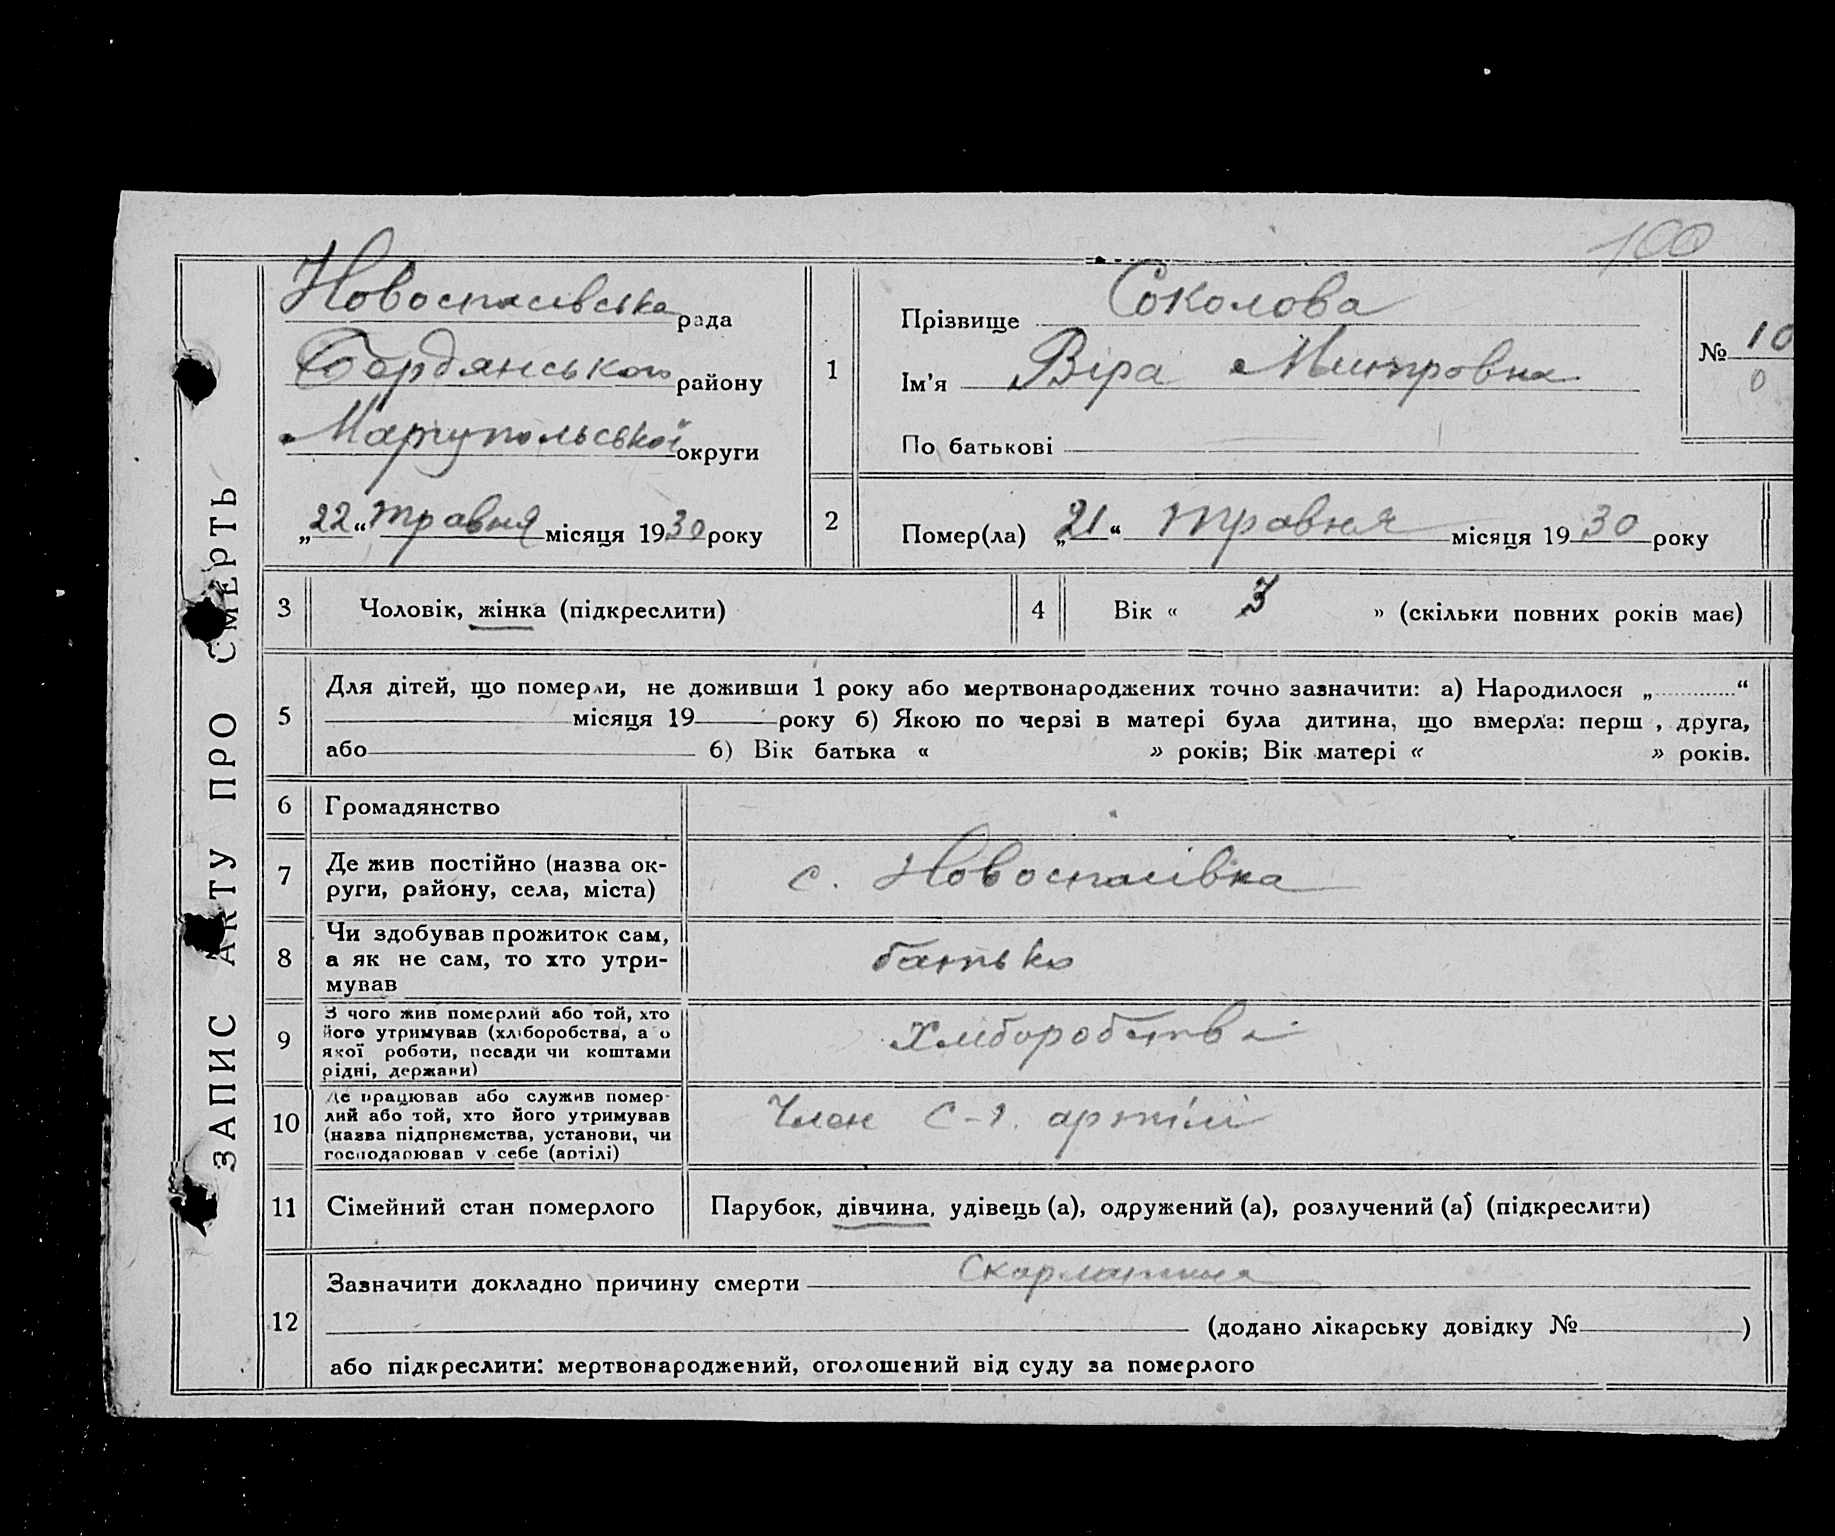 100
ЗАПИС АКТУ ПРО СМЕРТЬ
Новоспасівська рада
Бердянського району
Маріупольської округи
„22“ травня місяця 1930 року
1
Прізвище Соколова
Ім’я Віра Митровна
По батькові
№ 10
0
2
Помер(ла) „21“ травня місяця 1930 року
3 Чоловік, жінка (підкреслити)
4 Вік « 3 » (скільки повних років має)
5
Для дітей, що померли, не доживши 1 року або мертвонароджених точно зазначити: а) Народилося „ “
місяця 19 року б) Якою по черзі в матері була дитина, що вмерла: перш , друга,
або б) Вік батька « » років; Вік матері « » років.
6 Громадянство
7 Де жив постійно (назва ок-
руги, району, села, міста)
с. Новоспасівка
8 Чи здобував прожиток сам,
а як не сам, то хто утри-
мував
батько
9 З чого жив померлий або той, хто
його утримував (хліборобства, а о
якої роботи, посади чи коштами
рідні, держави)
Хліборобства
10 Де працював або служив помер-
лий або той, хто його утримував
(назва підприємства, установи, чи
господарював у себе (артілі)
Член С-г. артілі
11 Сімейний стан померлого
Парубок, дівчина, удівець (а), одружений (а), розлучений (а) (підкреслити)
12
Зазначити докладно причину смерти Скарлатина
(додано лікарську довідку № )
або підкреслити: мертвонароджений, оголошений від суду за померлого